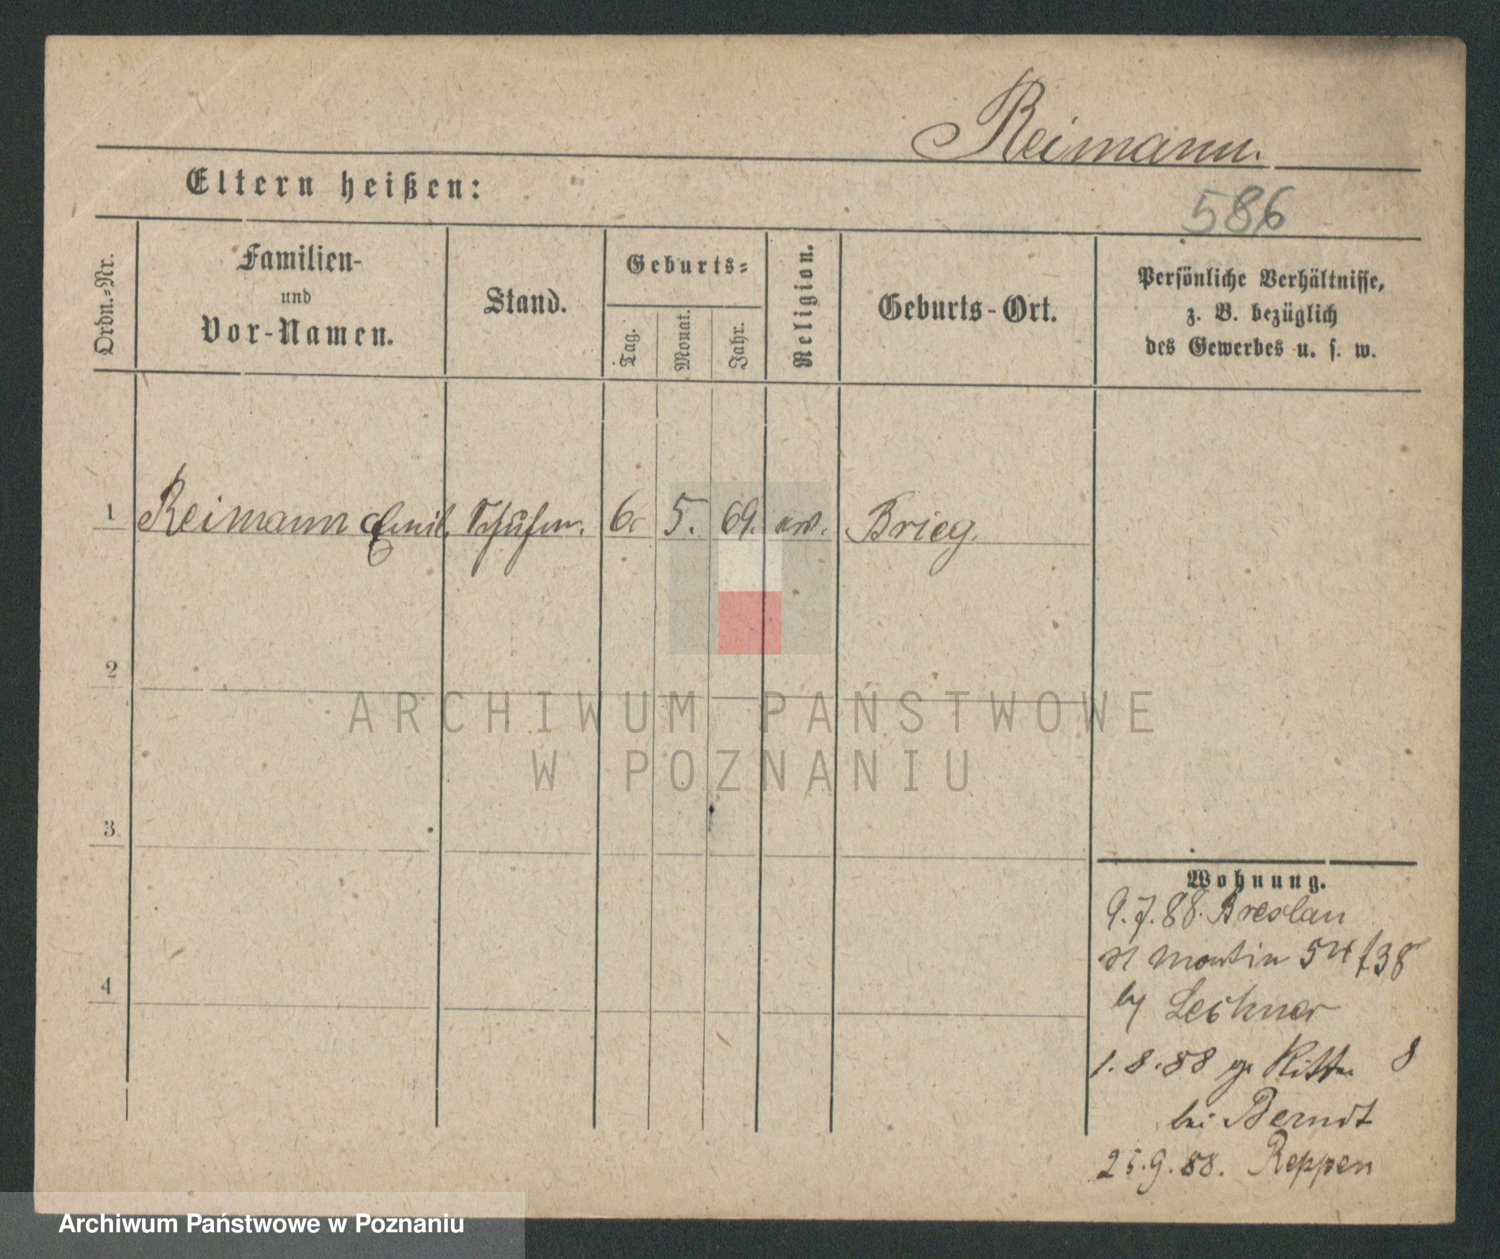 Reimann.
Eltern heißen:
586
Ordn.-Nr.
Familien-
und
Vor-Namen.
Stand.
Geburts-
Tag.
Monat.
Jahr.
Religion.
Geburts-Ort.
Persönliche Verhältnisse,
z. B. bezüglich
des Gewerbes u. s. w.
1 Reimann Emil. 6. 5. 69. Brieg.
2
3
4
ARCHIWUM PAŃSTWOWE
W POZNANIU
Wohnung.
9.7.88. Breslau
St Martin 54/38
bei Leskner
1.8.88 Ritter 8
bei Berndt
25.9.88. Reppen
Archiwum Państwowe w Poznaniu